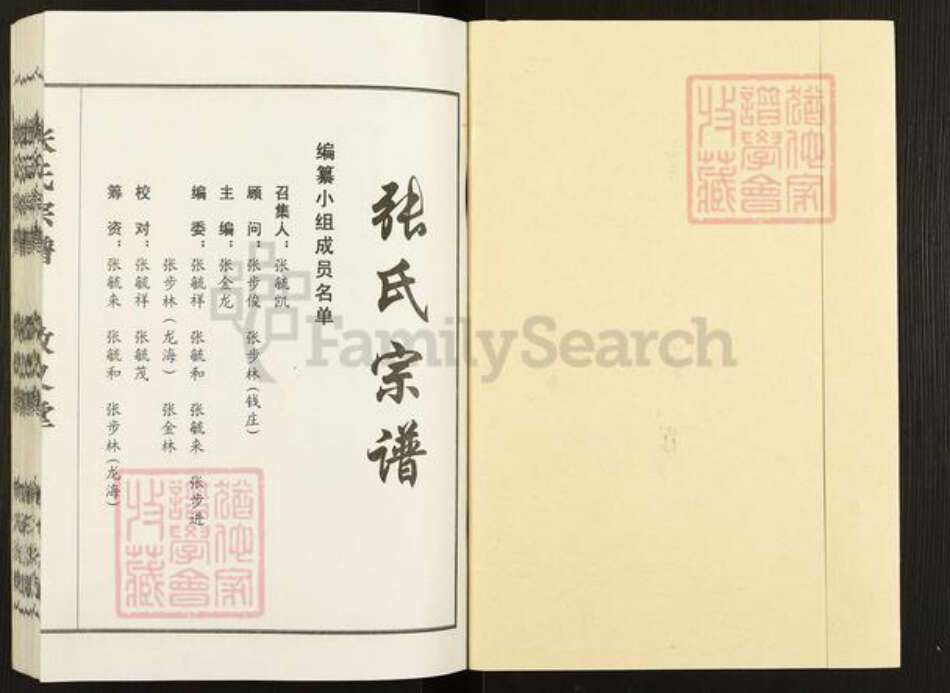 张氏宗谱
编纂小组成员名单
召集人：张毓凯
顾问：张步俊 张步林(钱庄)
主编：张金龙
编委：张毓祥 张毓和 张毓来 张步进
张步林(龙海) 张金林
校对：张毓祥 张毓茂
筹资：张毓来 张毓和 张步林(龙海)
张氏宗谱
FamilySearch
猶他家
譜學會
收藏
猶他家
譜學會
收藏